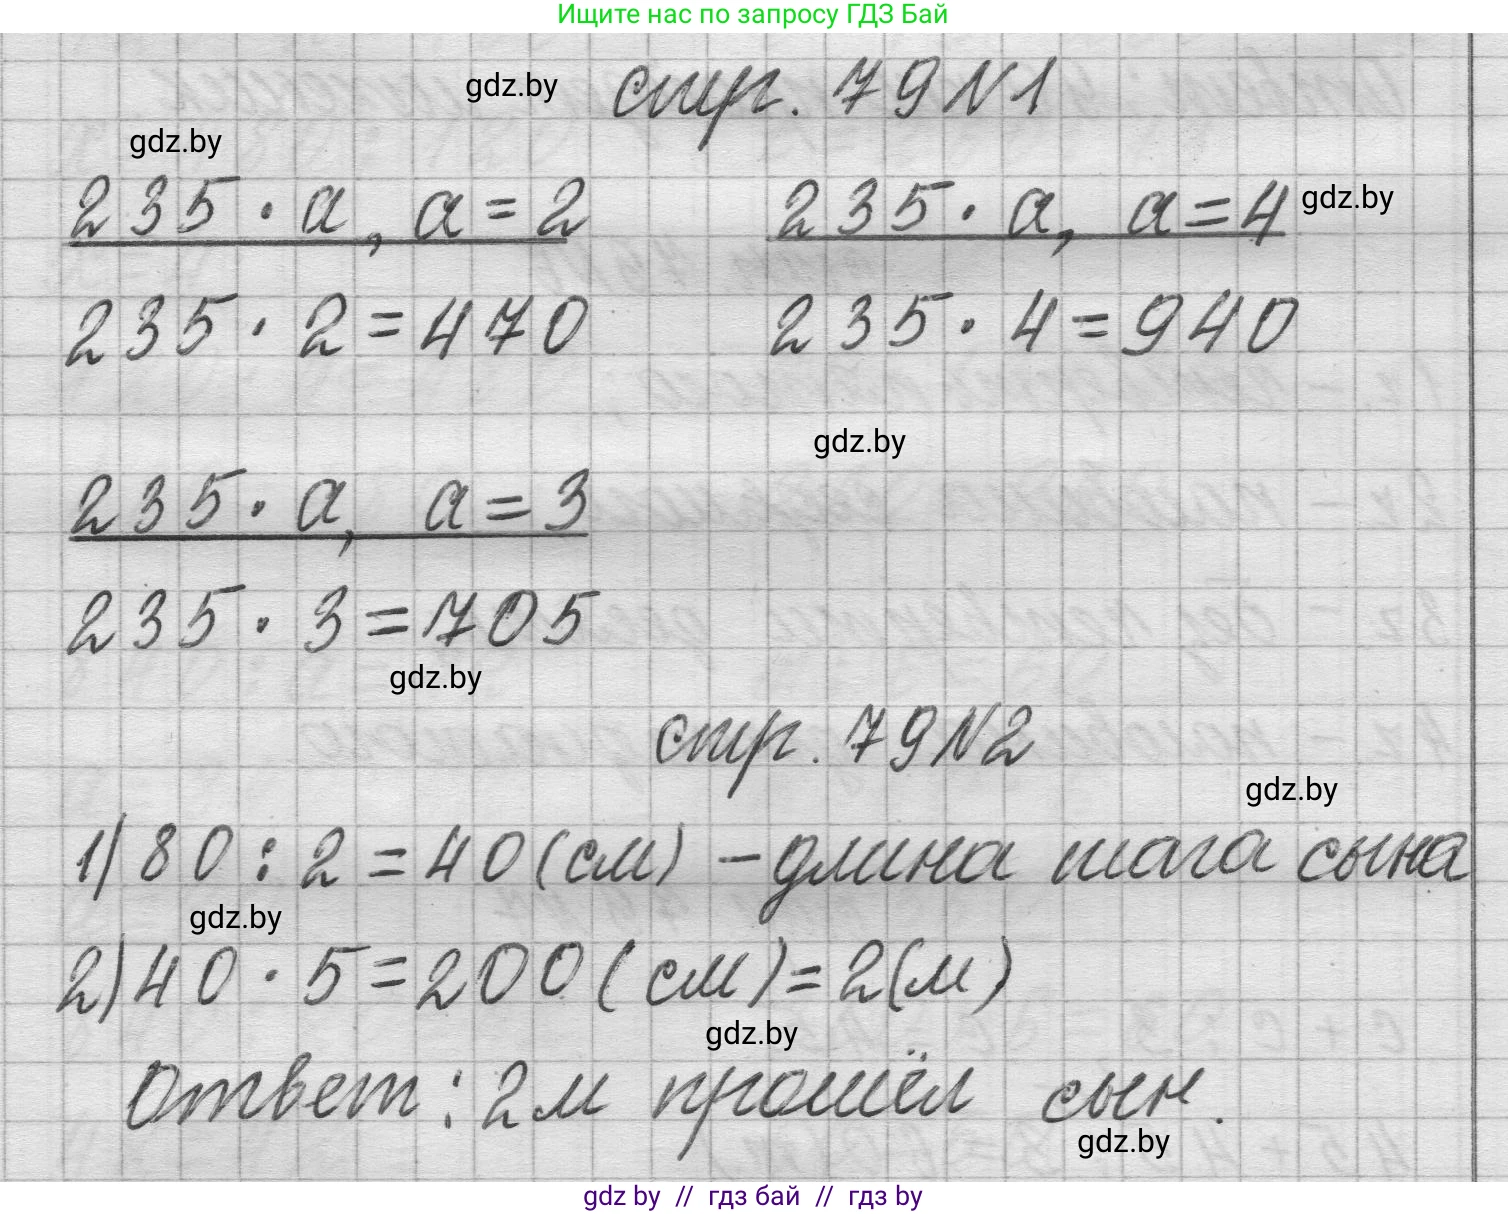 Ищите нас по запросу ГДЗ Бай
gdz.by
стр. 79 N1
gdz.by
235 · а, а = 2
235 · а, а = 4
gdz.by
235 · 2 = 470
235 · 4 = 940
gdz.by
235 · а, а = 3
235 · 3 = 705
gdz.by
стр. 79 N2
gdz.by
1) 80 : 2 = 40 (см) - длина шага сына
gdz.by
2) 40 · 5 = 200 (см) = 2 (м)
gdz.by
Ответ: 2 м прошёл сын.
gdz.by
gdz by // гдз бай // гдз by